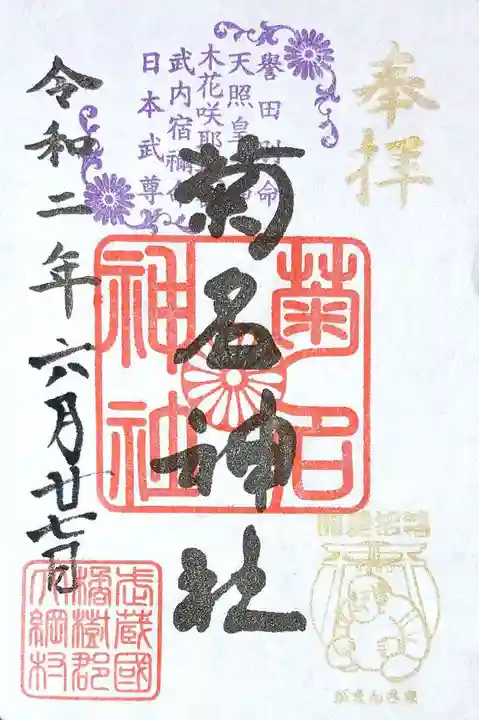 奉拝
譽田別命
天照皇
木花咲耶
武内宿禰命
日本武尊
菊名神社
菊名
神社
令和二年六月廿七日
武蔵國
橘樹郡
大綱村
がまんさま